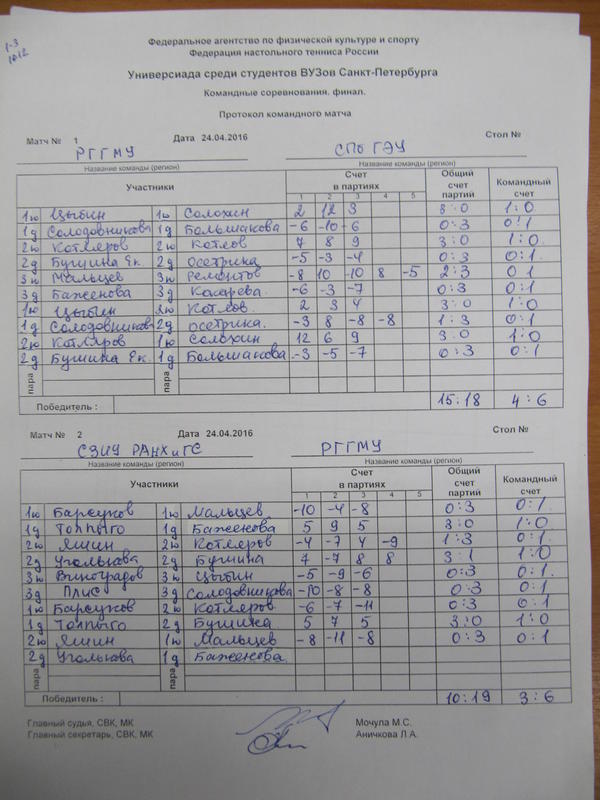 1-3
10.12
Федеральное агентство по физической культуре и спорту
Федерация настольного тенниса России
Универсиада среди студентов ВУЗов Санкт-Петербурга
Командные соревнования. финал.
Протокол командного матча
Матч № 1 Дата 24.04.2016 Стол №
РГГМУ СПб ГЭУ
Название команды (регион) Название команды (регион)
Участники Счет в партиях Общий счет партий Командный счет
1 2 3 4 5
1ю Цыбин 1ю Солохин 2 12 3 3:0 1:0
1д Солодовникова 1д Большакова -6 -10 -6 0:3 0:1
2ю Котляров 2ю Котлов 7 8 9 3:0 1:0
2д Бушина Ек. 2д Осетрика -5 -3 -4 0:3 0:1
3ю Мальцев 3ю Ремонтов -8 10 -10 8 -5 2:3 0 1
3д Баженова 3д Касарева -6 -3 -7 0:3 0:1
1ю Цыбин 2ю Котлов. 2 3 4 3:0 1:0
1д Солодовникова 2д осетрика. -3 8 -8 -8 1:3 0:1
2ю Котляров 1ю Солохин 12 6 9 3:0 1:0
2д Бушина Ек. 1д Большакова -3 -5 -7 0:3 0:1
пара пара
Победитель : 15:18 4:6
Матч № 2 Дата 24.04.2016 Стол №
СЗИУ РАНХиГС РГГМУ
Название команды (регион) Название команды (регион)
Участники Счет в партиях Общий счет партий Командный счет
1 2 3 4 5
1ю Барсуков 1ю Мальцев -10 -4 -8 0:3 0:1
1д Толпыго 1д Баженова 5 9 5 3:0 1:0
2ю Яшин 2ю Котляров -4 -7 4 -9 1:3 0:1
2д Уголькова 2д Бушина 7 -7 8 8 3:1 1:0
3ю Виноградов 3ю Цыбин -5 -9 -6 0:3 0:1
3д Плис 3д Солодовникова -10 -8 -8 0:3 0:1
1ю Барсуков 2ю Котляров -6 -7 -11 0:3 0:1
1д Толпыго 2д Бушина 5 7 5 3:0 1:0
2ю Яшин 1ю Мальцев -8 -11 -8 0:3 0:1
2д Уголькова 1д Баженова.
пара пара
Победитель : 10:19 3:6
Главный судья, СВК, МК Мочула М.С.
Главный секретарь, СВК, МК Аничкова Л.А.